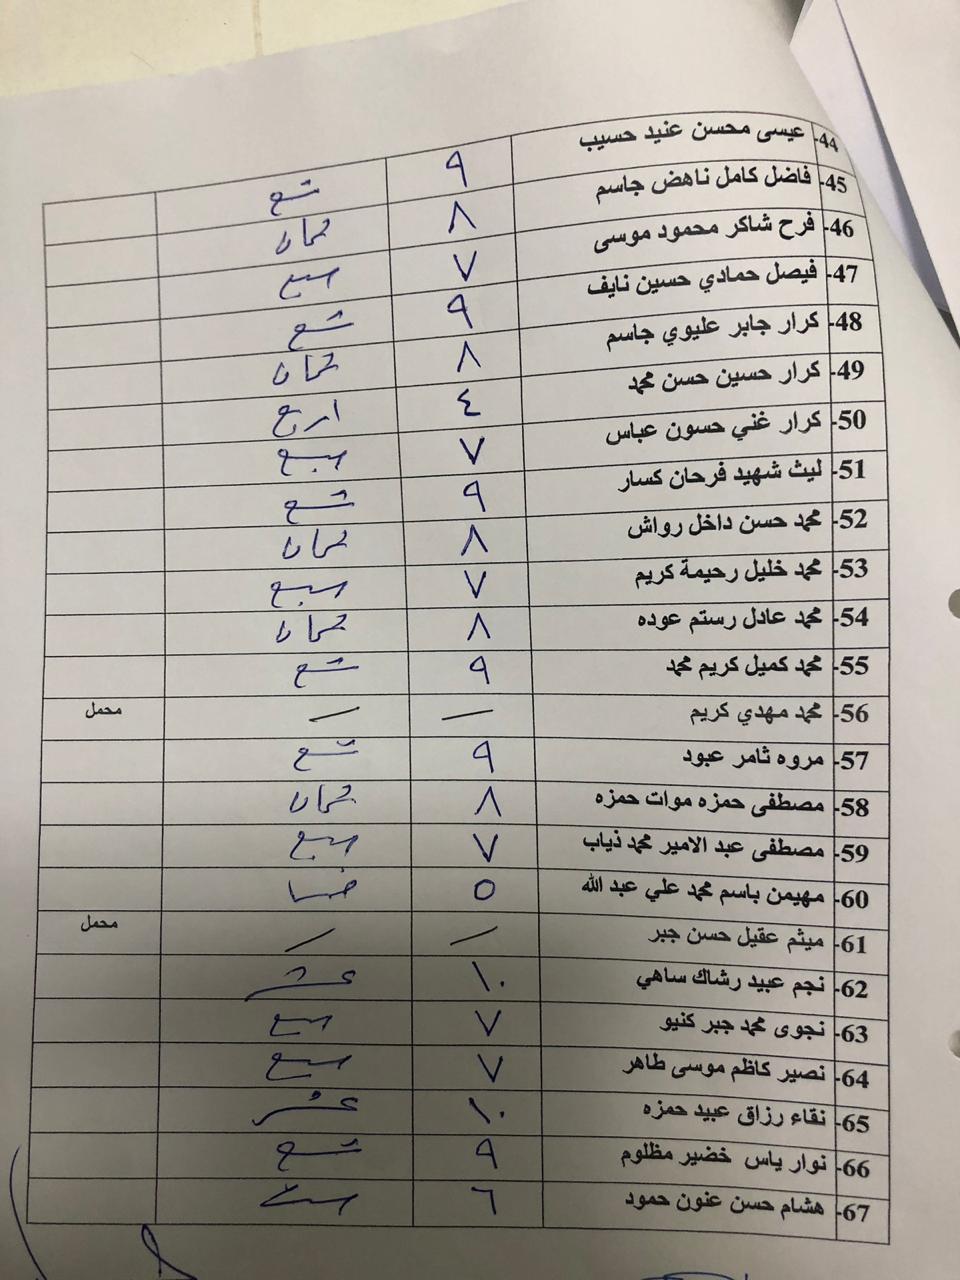 44- عيسى محسن عنيد حسيب ٩ تسع
45- فاضل كامل ناهض جاسم ٨ ثمان
46- فرح شاكر محمود موسى ٧ سبع
47- فيصل حمادي حسين نايف ٩ تسع
48- كرار جابر عليوي جاسم ٨ ثمان
49- كرار حسين حسن محمد ٤ اربع
50- كرار غني حسون عباس ٧ سبع
51- ليث شهيد فرحان كسار ٩ تسع
52- محمد حسن داخل رواش ٨ ثمان
53- محمد خليل رحيمة كريم ٧ سبع
54- محمد عادل رستم عوده ٨ ثمان
55- محمد كميل كريم محمد ٩ تسع
56- محمد مهدي كريم — — محمل
57- مروه ثامر عبود ٩ تسع
58- مصطفى حمزه موات حمزه ٨ ثمان
59- مصطفى عبد الامير محمد ذياب ٧ سبع
60- مهيمن باسم محمد علي عبد الله ٥ خمسا
61- ميثم عقيل حسن جبر — — محمل
62- نجم عبيد رشاك ساهي ١٠ عشر
63- نجوى محمد جبر كنيو ٧ سبع
64- نصير كاظم موسى طاهر ٧ سبع
65- نقاء رزاق عبيد حمزه ١٠ عشر
66- نوار ياس خضير مظلوم ٩ تسع
67- هشام حسن عنون حمود ٦ ست